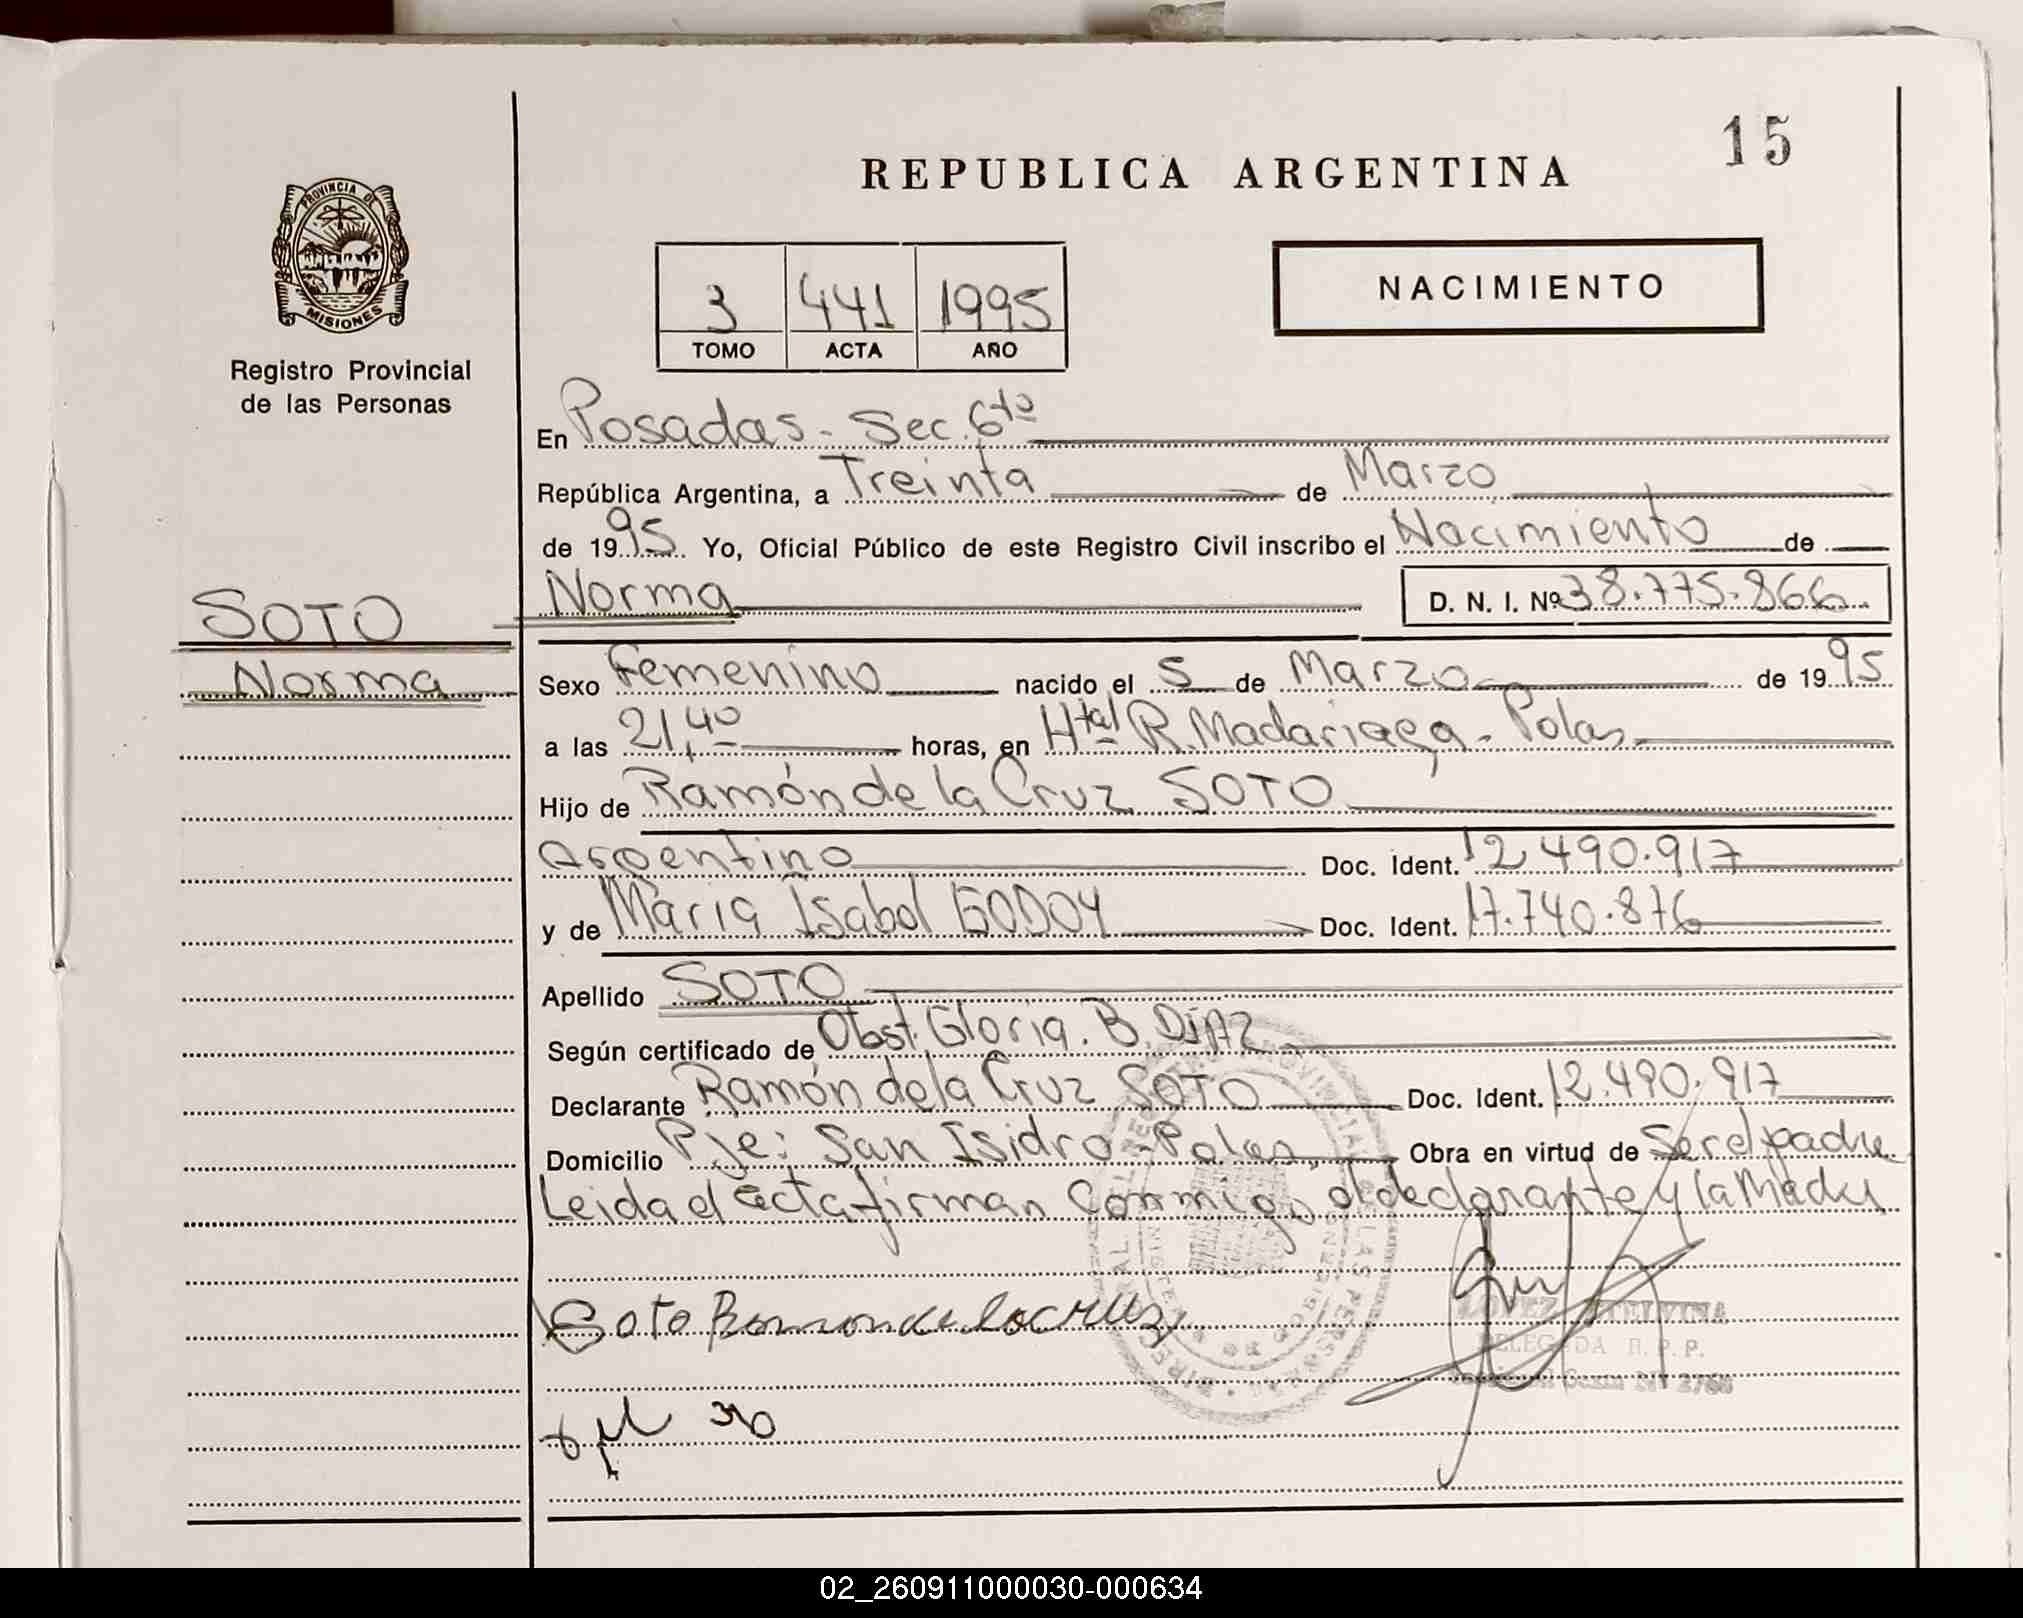 15
REPUBLICA ARGENTINA
PROVINCIA DE
MISIONES
Registro Provincial
de las Personas
3 441 1995
TOMO ACTA AÑO
NACIMIENTO
En Posadas - Sec. 6ta
República Argentina, a Treinta de Marzo
de 1995 Yo, Oficial Público de este Registro Civil inscribo el Nacimiento de
Norma D. N. I. Nº 38.775.866
SOTO
Norma
Sexo Femenino nacido el 5 de Marzo de 1995
a las 21,40 horas, en Htal R. Madariaga - Polas
Hijo de Ramón de la Cruz SOTO
Argentino Doc. Ident. 12.490.917
y de Maria Isabel GODOY Doc. Ident. 17.740.876
Apellido SOTO
Según certificado de Obst. Gloria. B. DiAZ
Declarante Ramón de la Cruz SOTO Doc. Ident. 12.490.917
Domicilio Pje: San Isidro - Polas Obra en virtud de Ser el padre
Leida el acta firman Conmigo el declarante y la Madre
Soto Ramon de la cruz
LOPEZ ETELVINA
DELEGADA R. P. P.
02_260911000030-000634